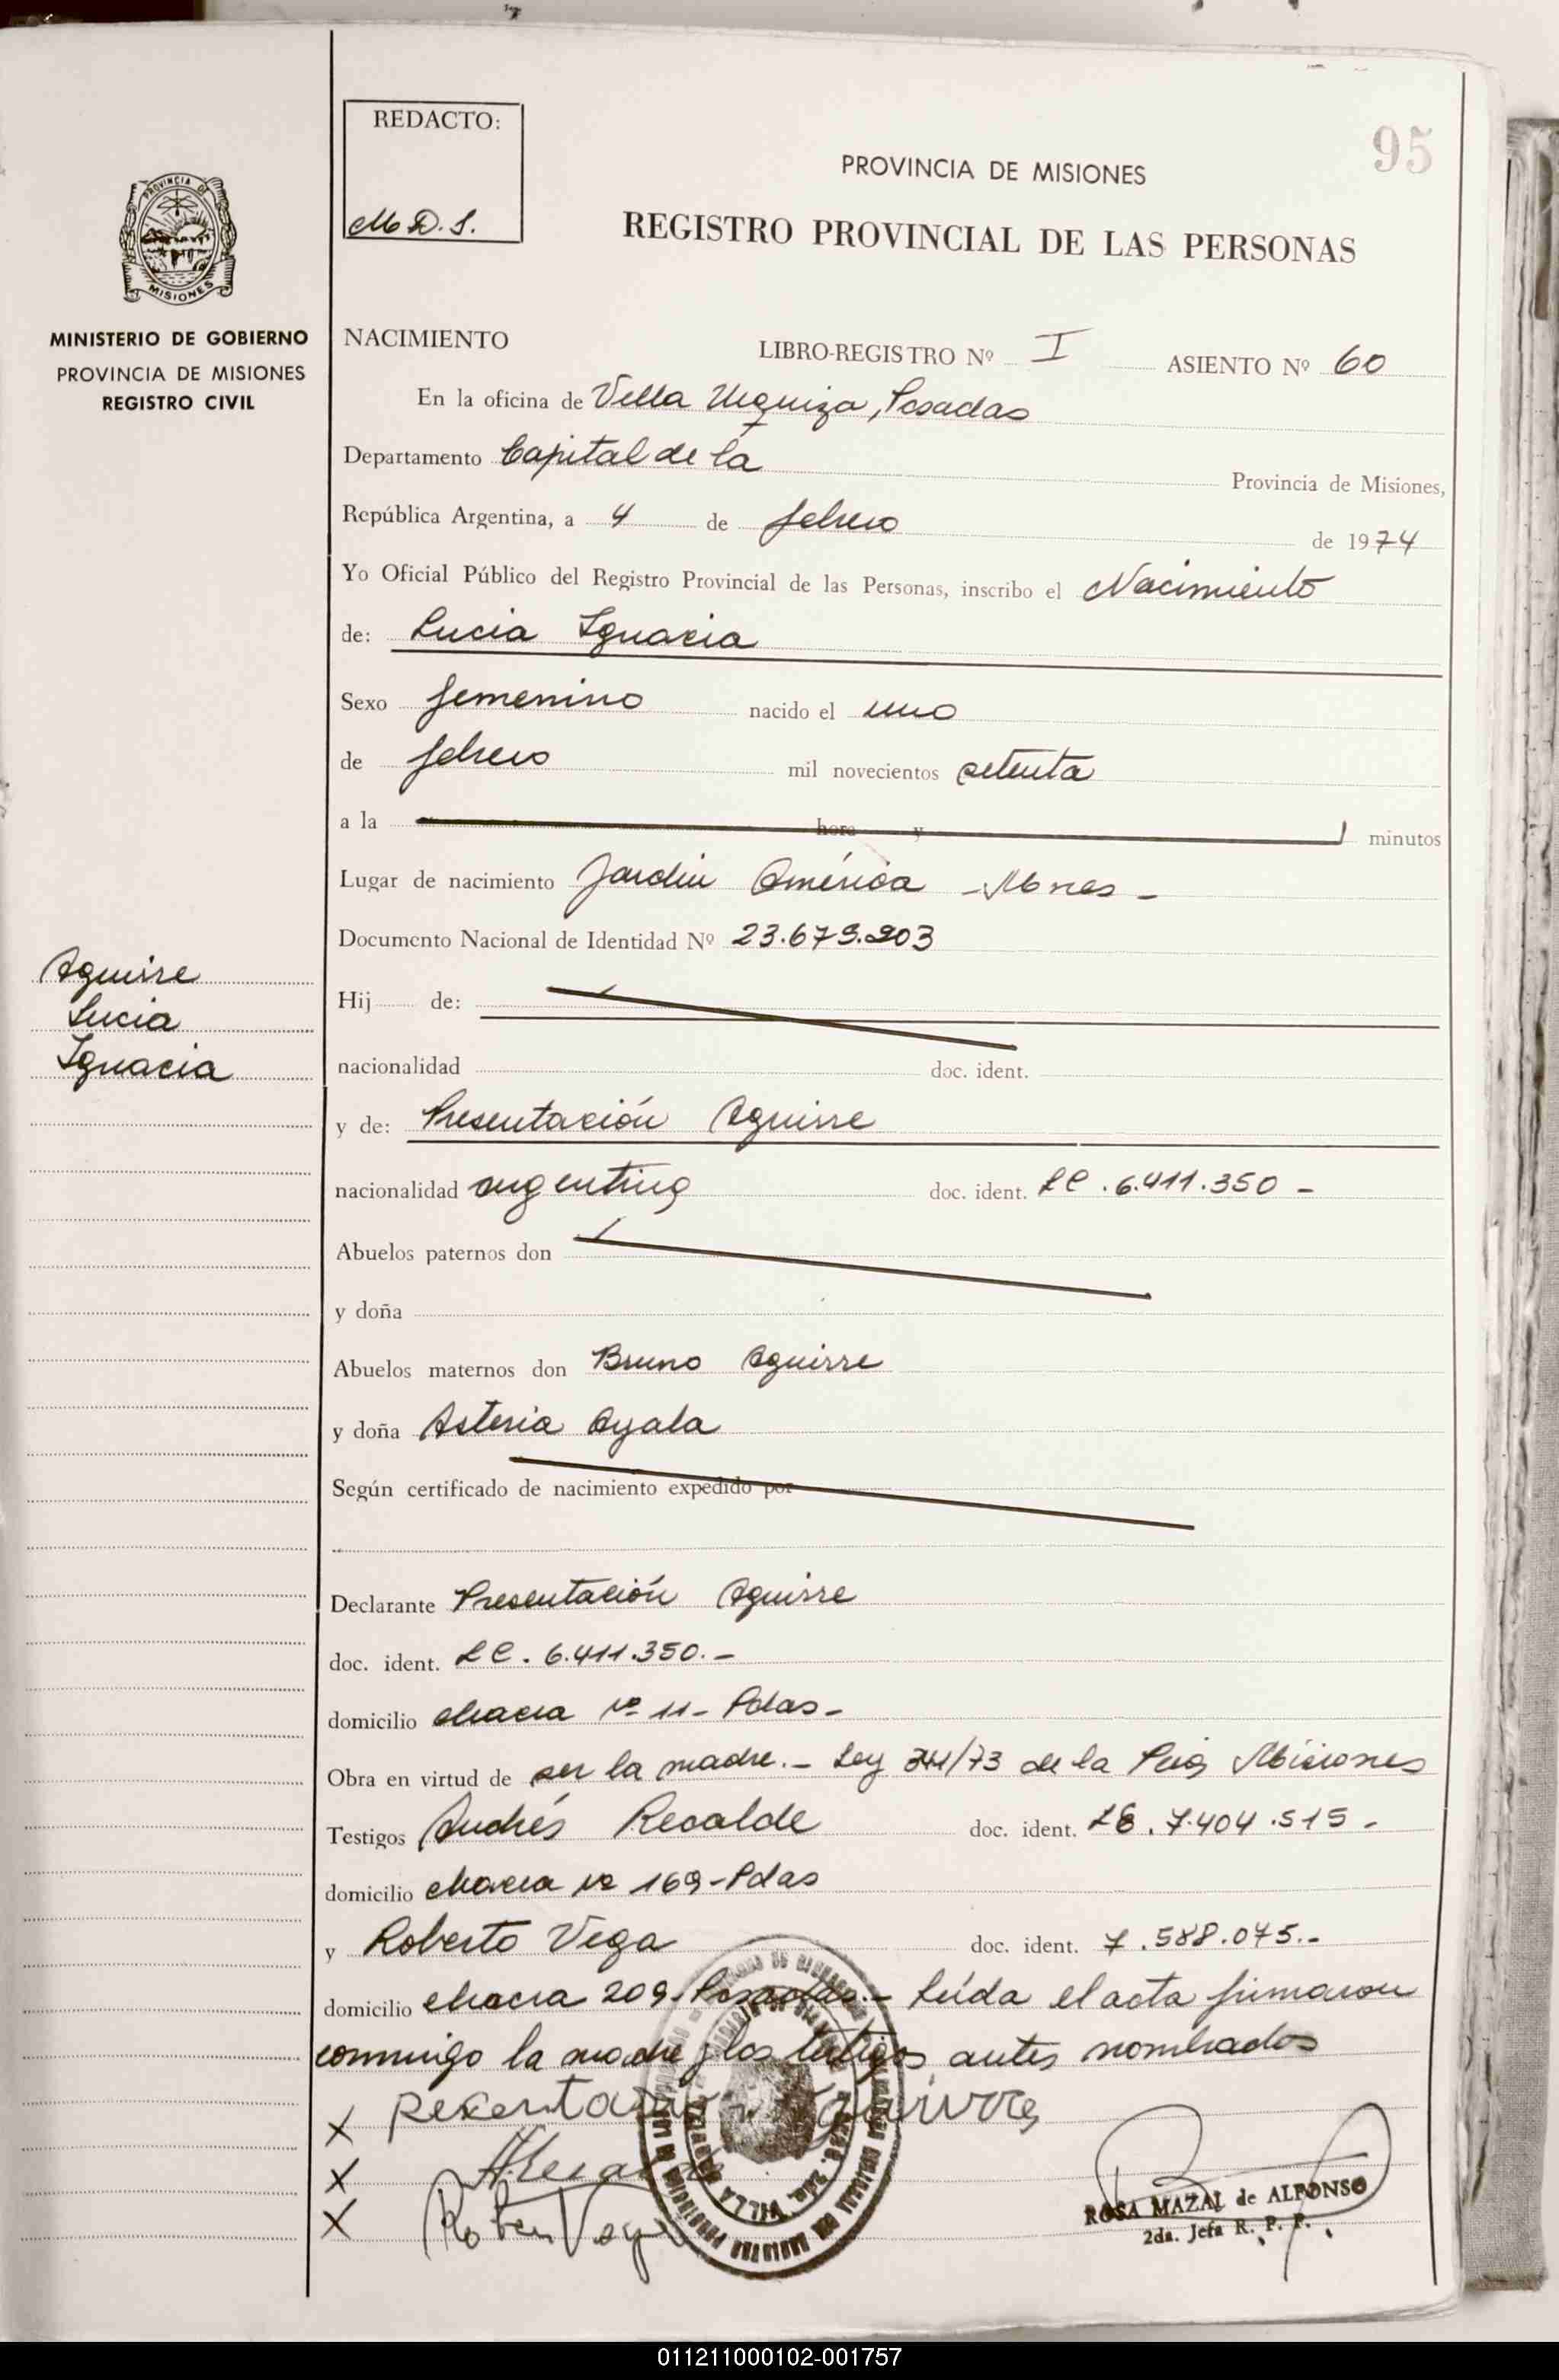 95
REDACTO:
M D. S.
PROVINCIA DE MISIONES
REGISTRO PROVINCIAL DE LAS PERSONAS
PROVINCIA DE
MISIONES
MINISTERIO DE GOBIERNO
PROVINCIA DE MISIONES
REGISTRO CIVIL
NACIMIENTO LIBRO-REGISTRO Nº I ASIENTO Nº 60
En la oficina de Villa Urquiza, Posadas
Departamento Capital de la Provincia de Misiones,
República Argentina, a 4 de febrero de 1974
Yo Oficial Público del Registro Provincial de las Personas, inscribo el Nacimiento
de: Lucia Ignacia
Sexo femenino nacido el uno
de febrero mil novecientos setenta
a la hora y minutos
Lugar de nacimiento Jardín América - Mnes -
Documento Nacional de Identidad Nº 23.679.903
Aguirre
Lucia
Ignacia
Hij de:
nacionalidad doc. ident.
y de: Presentación Aguirre
nacionalidad argentina doc. ident. LC. 6.411.350 -
Abuelos paternos don
y doña
Abuelos maternos don Bruno Aguirre
y doña Asteria Ayala
Según certificado de nacimiento expedido por
Declarante Presentación Aguirre
doc. ident. LC. 6.411.350. -
domicilio chacra Nº 11 - Pdas -
Obra en virtud de ser la madre. - Ley /73 de la Misiones
Testigos Andrés Recalde doc. ident. LE. 7.404.515 -
domicilio chacra Nº 169 - Pdas
y Roberto Vega doc. ident. 7.588.075. -
domicilio chacra 209 - Posadas. - Leída el acta firmaron
conmigo la madre y los testigos antes nombrados
x
x
x
VILLA
ROSA MAZAL de ALFONSO
2da. Jefa R. P. P.
011211000102-001757